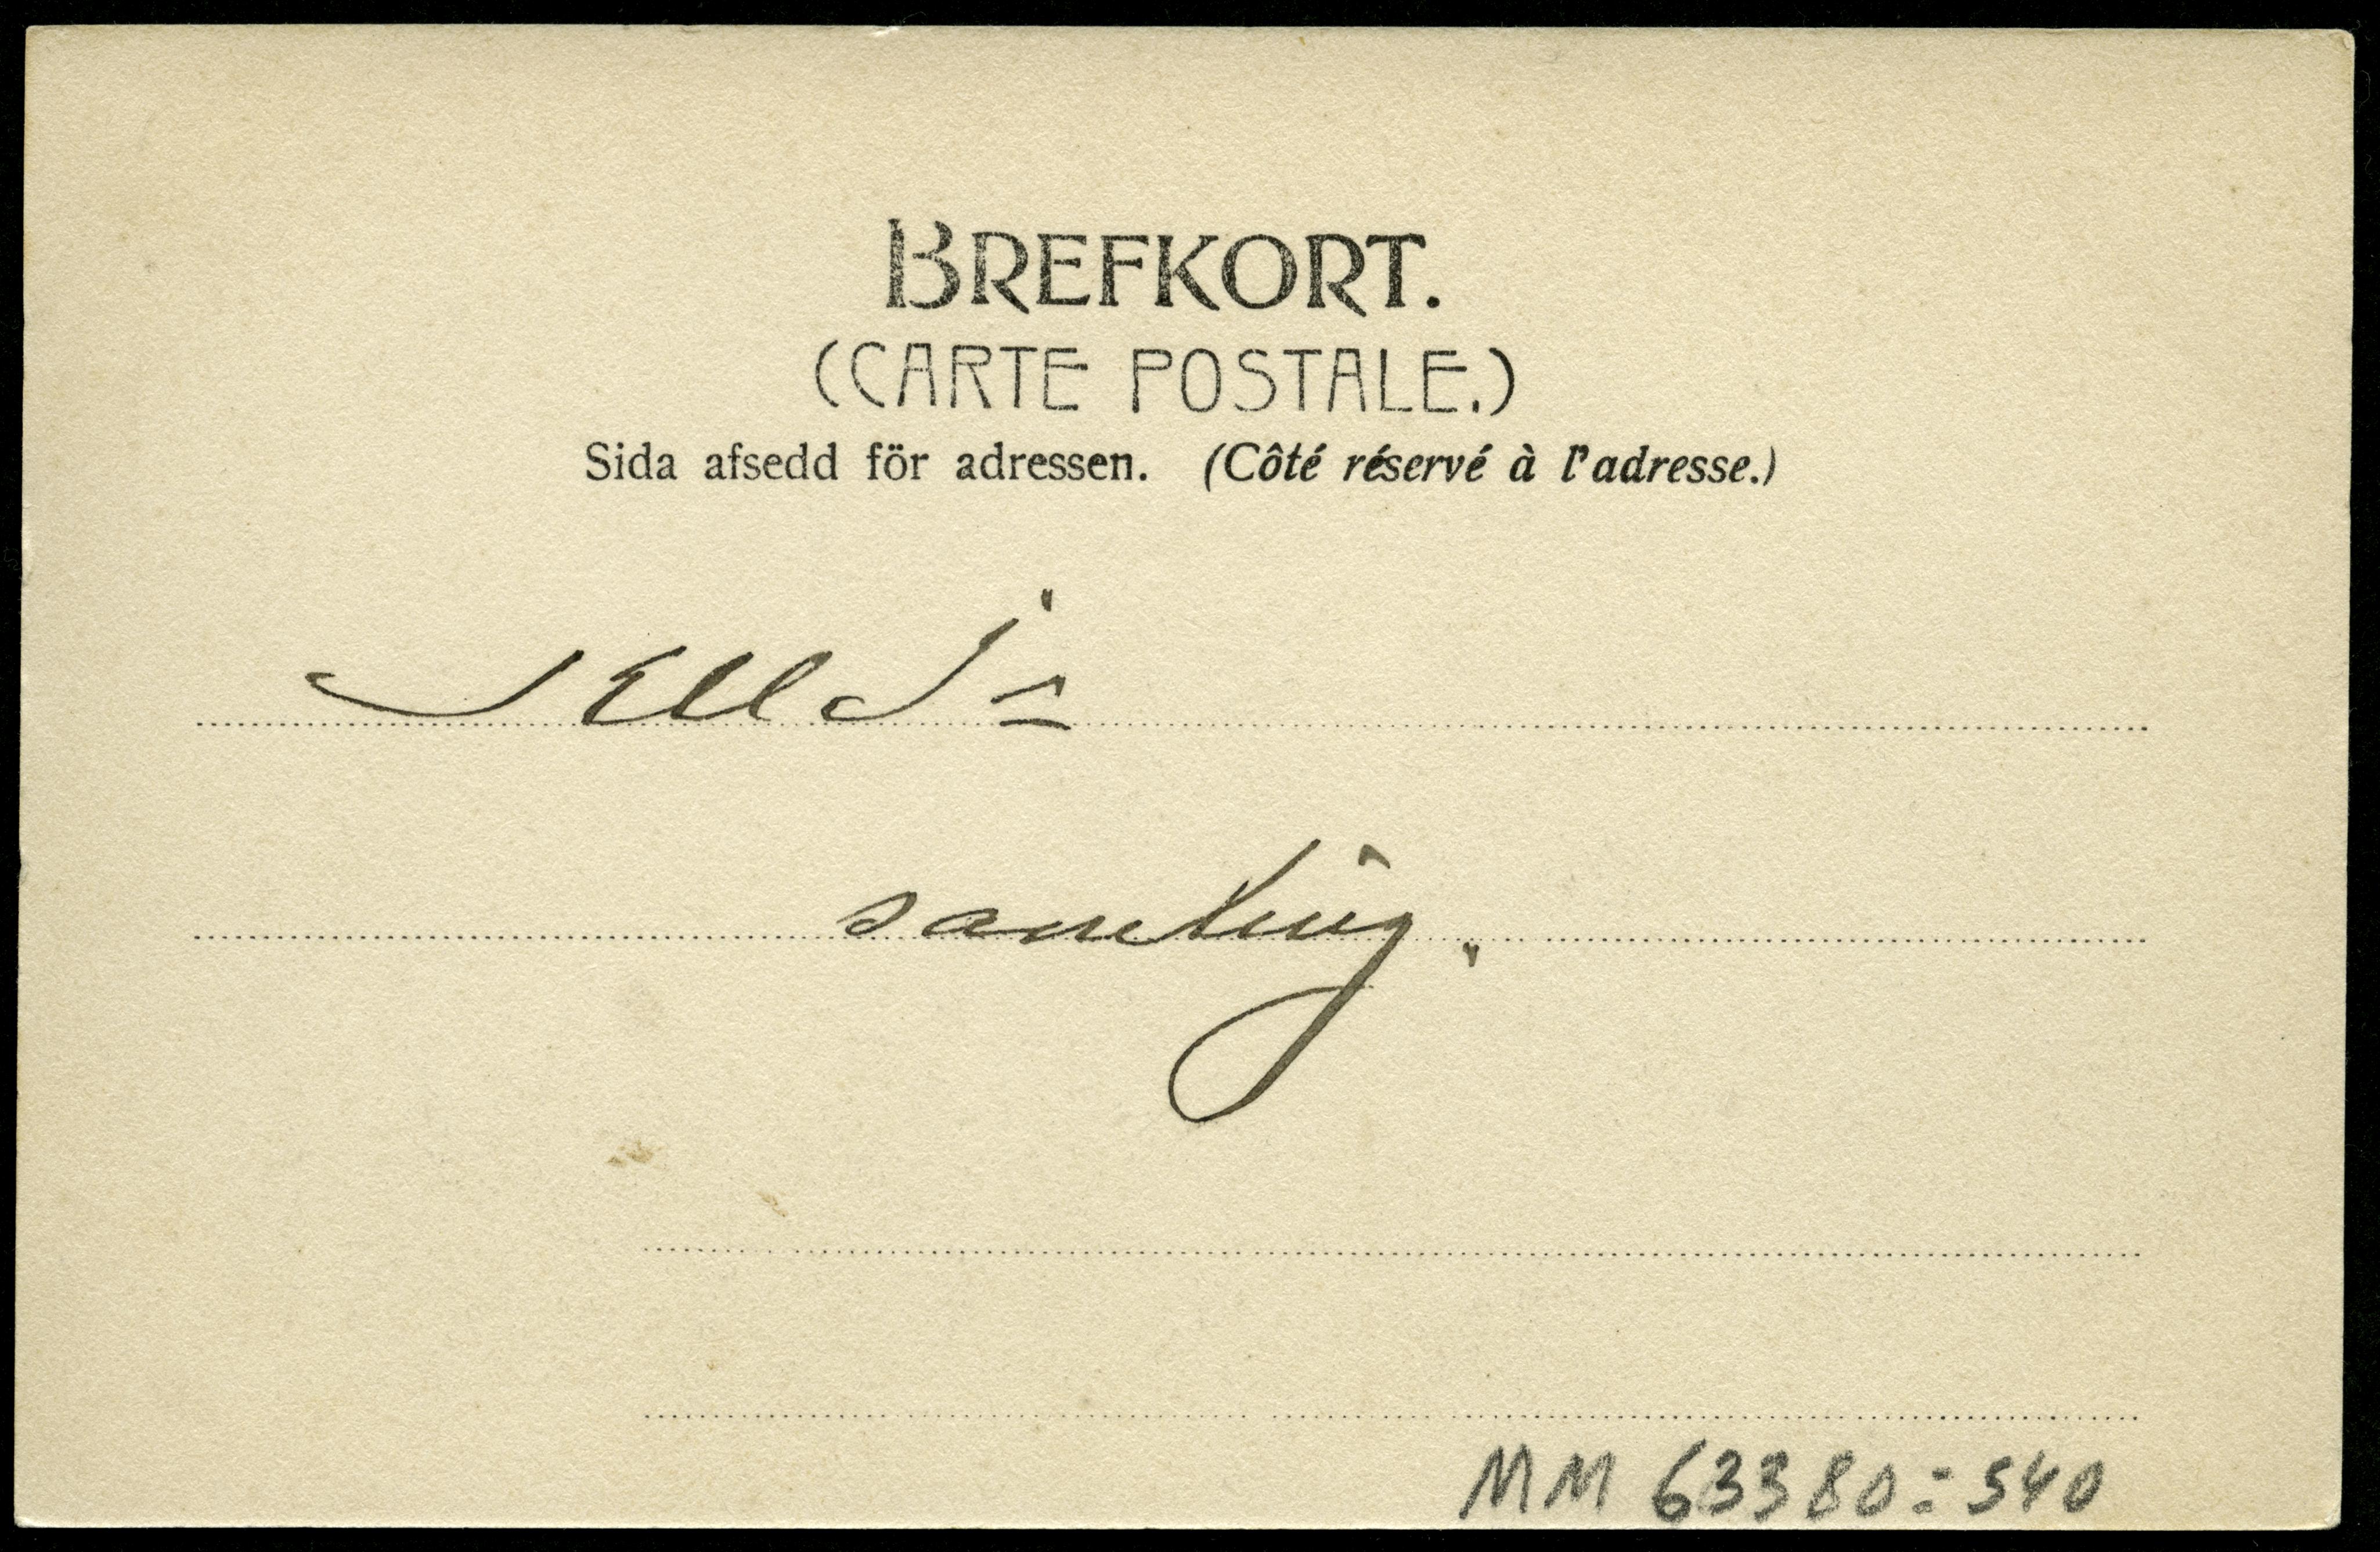 BREFKORT.
(CARTE POSTALE.)
Sida afsedd för adressen. (Côté réservé à l'adresse.)
samling.
MM 63380:540